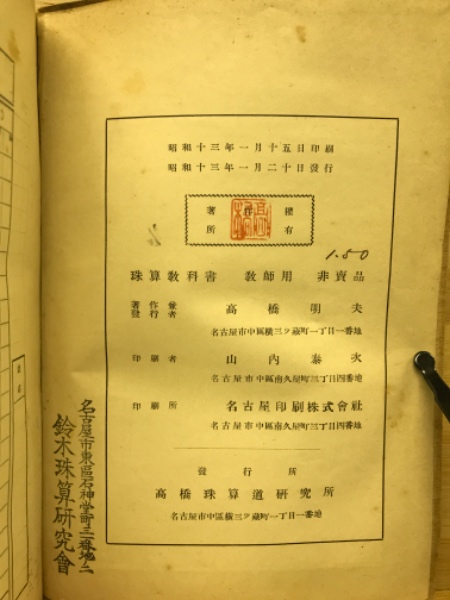 昭和十三年一月十五日印刷
昭和十三年一月二十日發行
著作權
所有
1.50
珠算教科書 教師用 非賣品
著作兼
發行者 高橋明夫
名古屋市中區横三ツ藏町一丁目一番地
印刷者 山内泰次
名古屋市中區南久屋町三丁目四番地
印刷所 名古屋印刷株式會社
名古屋市中區南久屋町三丁目四番地
發行所
高橋珠算道研究所
名古屋市中區横三ツ藏町一丁目一番地
名古屋市東區石神堂町三ノ番地ノ二
鈴木珠算研究會